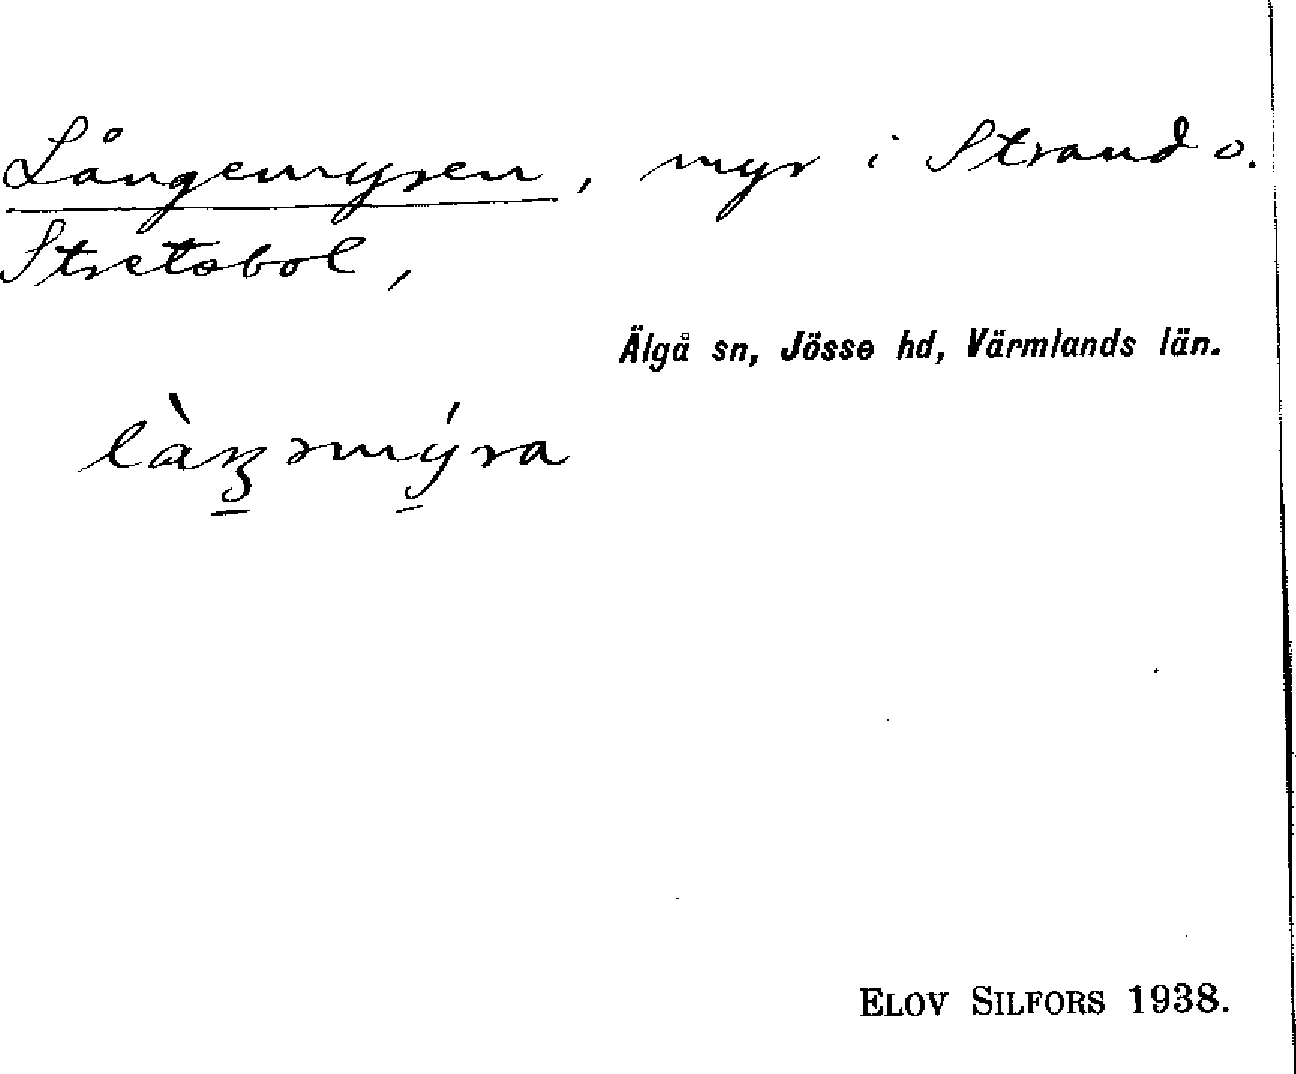 Långemyren, myr i Strand o.
Stretabol,
Älgå sn, Jösse hd, Värmlands län.
ELOV SILFORS 1938.